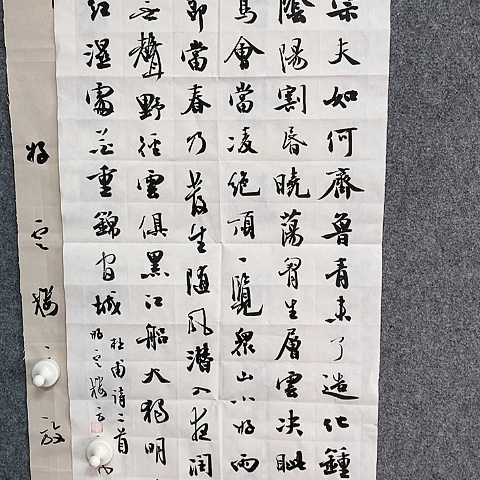 宗夫如何齊魯青未了造化鍾
陰陽割昏曉蕩胸生層雲決眥
鳥會當凌絕頂一覽眾山小好雨
節當春乃發生隨風潛入夜潤
無聲野徑雲俱黑江船火獨明
紅濕處花重錦官城
杜甫詩二首